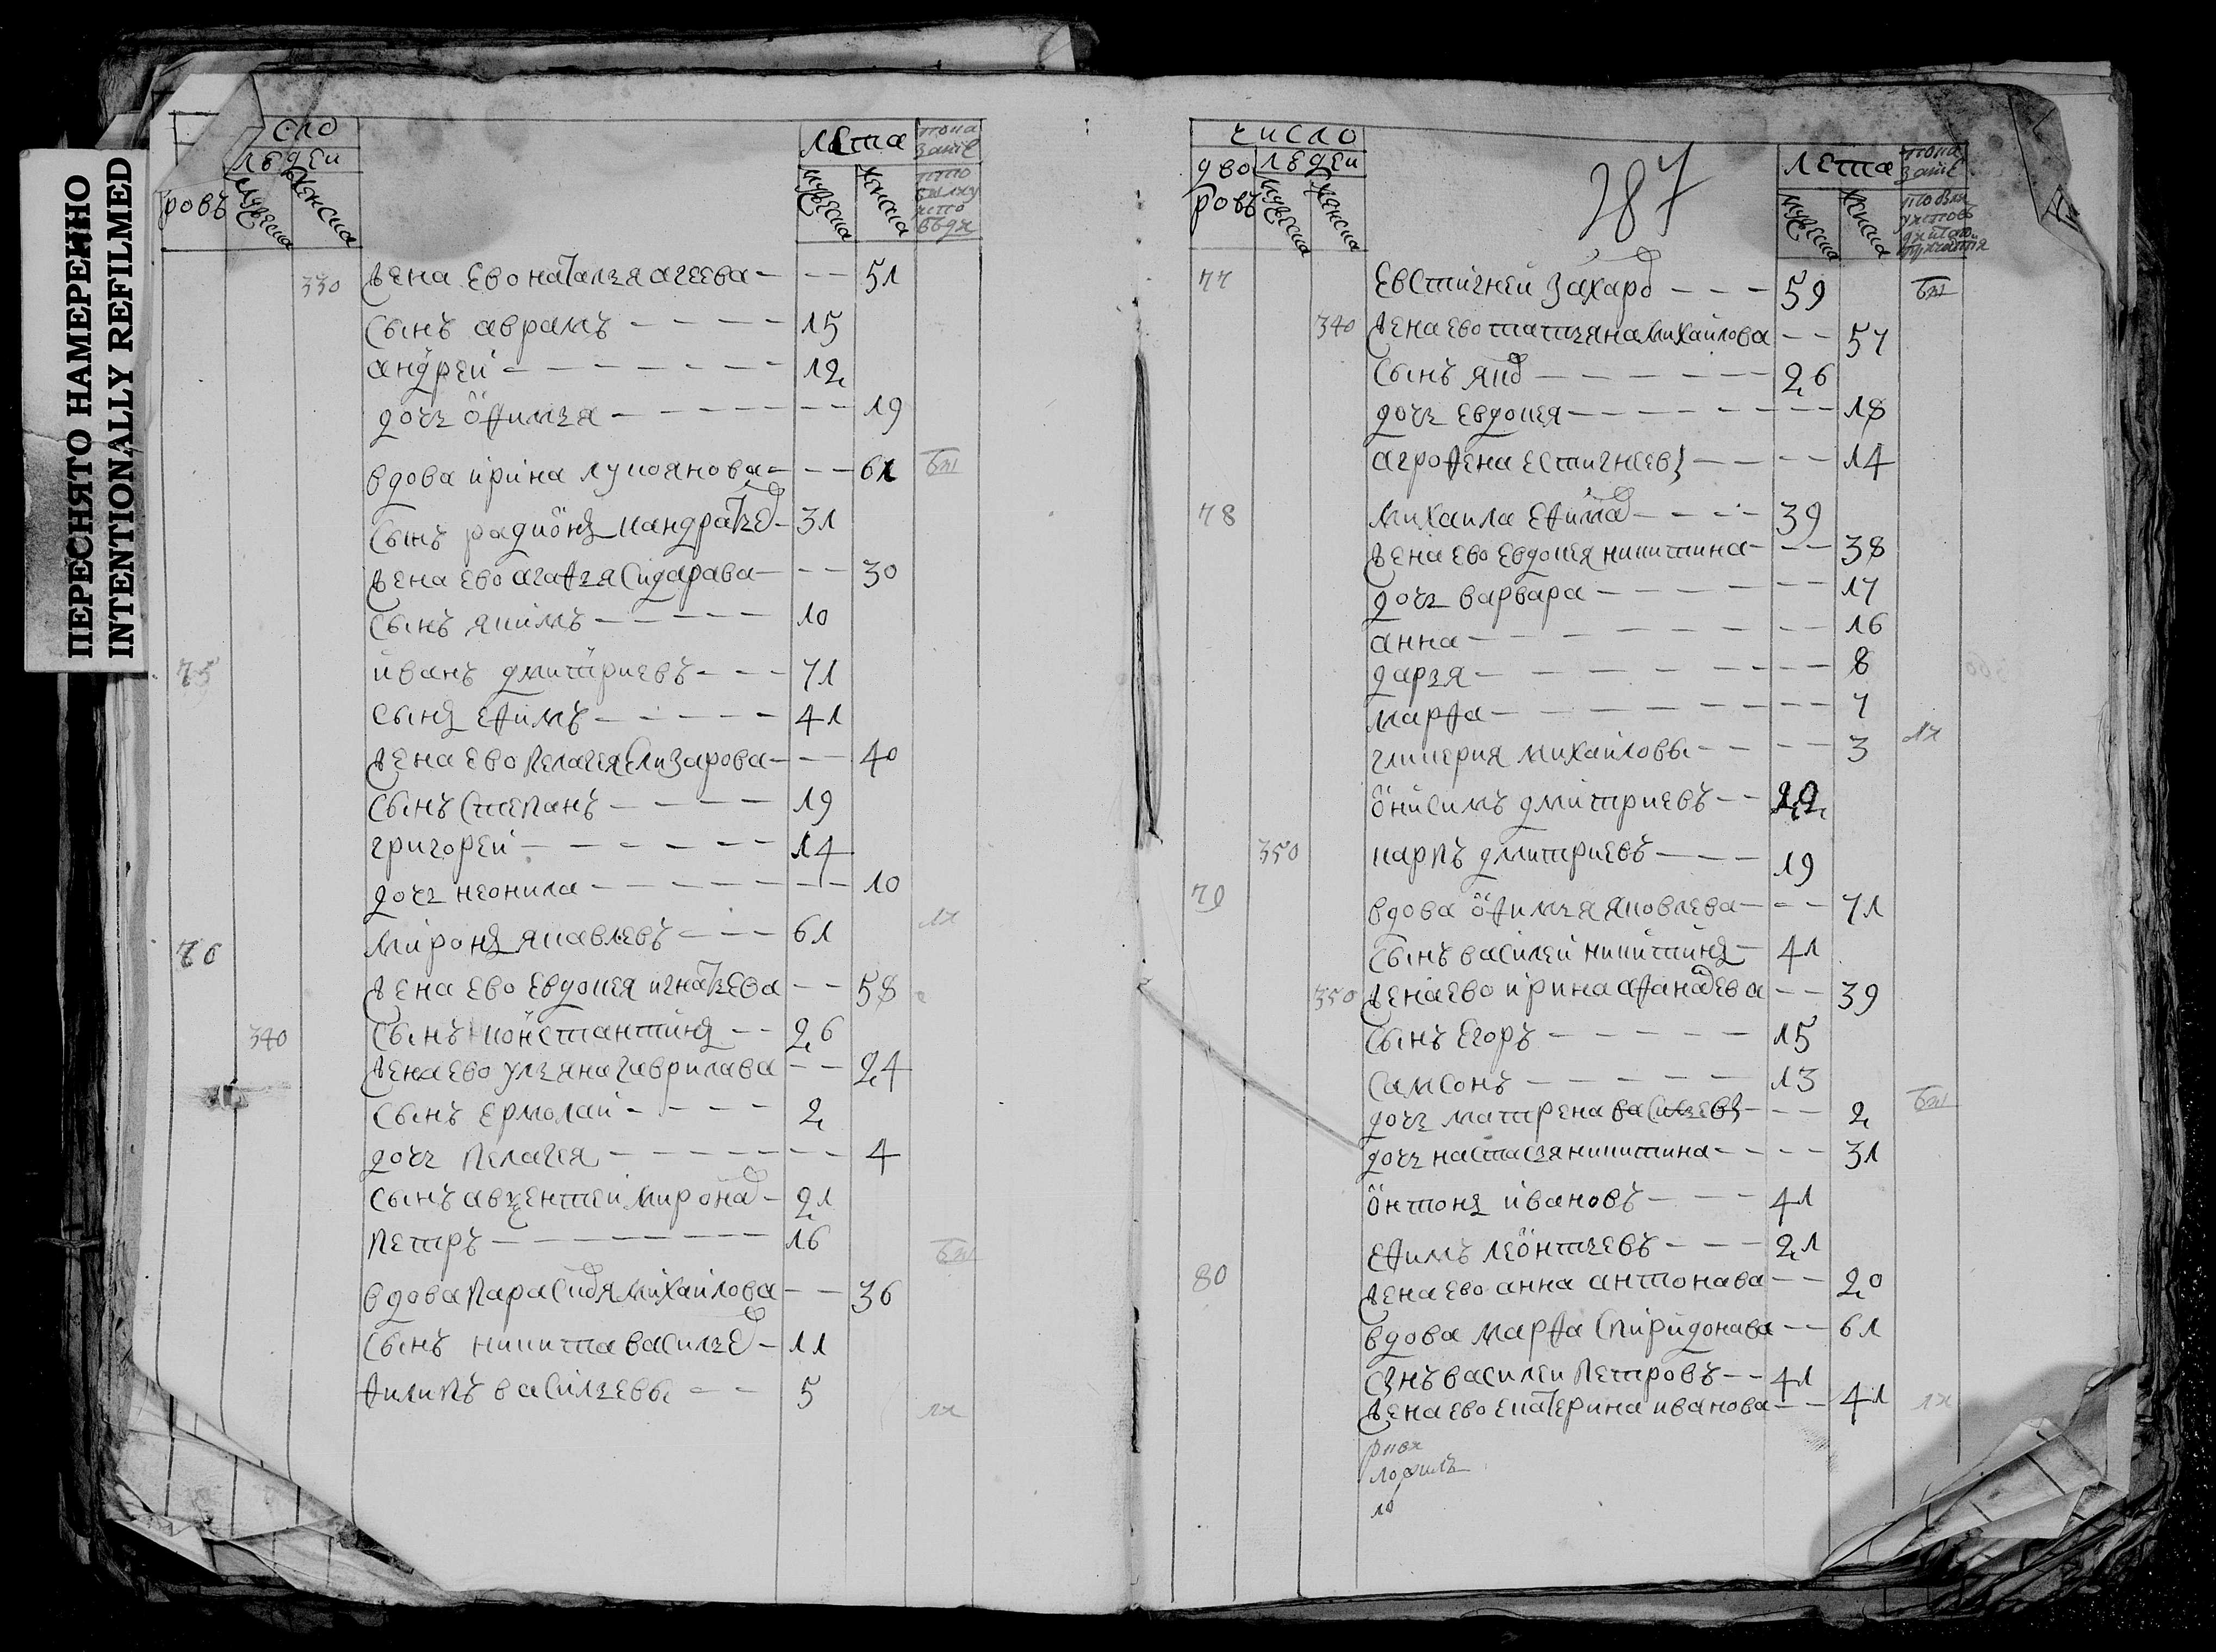 ПЕРЕСНЯТО НАМЕРЕННО
INTENTIONALLY REFILMED
сло
людей
ровъ мужеска женска
лета
мужеска женска
330 жена ево наталья агеева - - - 51
сынъ аврамъ - - - - 15
андрей - - - - - - - 12
дочь офимья - - - - - - - 19
вдова ирина лукоянова - - - 61
сынъ радионъ кандратьев - 31
жена ево агафья сидарава - - - 30
сынъ якимъ - - - - - 10
75 иванъ дмитриевъ - - - 71
сынъ ефимъ - - - - - 41
жена ево пелагея елизарова - - - 40
сынъ степанъ - - - - 19
григорей - - - - - - 14
дочь неонила - - - - - - - 10
76 миронъ якавлевъ - - - 61
жена ево евдокея игнатьева - - 58
340 сынъ констаптинъ - - 26
жена ево ульяна гаврилава - - 24
сынъ ермолай - - - - 2
дочь пелагея - - - - - - - 4
сынъ авзентей мирона - 21
петръ - - - - - - - - 16
вдова парасковя михайлова - - 36
сынъ никита василье - 11
филипъ васильевы - - 5
число
дво людей
ровъ мужеска женска
287
лета
мужеска женска
77 евстигней захаро - - - 59
340 жена ево татьяна михайлова - - 57
сынъ яко - - - - - - 26
дочь евдокея - - - - - - - - 18
агрофена естигнеевы - - - - 14
78 михаила ефимо - - - - 39
жена ево евдокея никитина - - - 38
дочь варвара - - - - - - - 17
анна - - - - - - - - - 16
дарья - - - - - - - - - 8
марфа - - - - - - - - - 7
гликерия михайловы - - - - - 3
онисимъ дмитриевъ - - 22
350 карпъ дмитриевъ - - - 19
79 вдова офимья яковлева - - - 71
сынъ василей никитинъ - 41
350 жена ево ирина афанасева - - 39
сынъ егоръ - - - - - - 15
самсонъ - - - - - - 13
дочь матрена васильевы - - - 2
дочь настасья никитина - - - - 31
онтонъ ивановъ - - - - 41
ефимъ леонтьевъ - - - - 21
80 жена ево анна антонава - - 20
вдова марфа спиридонава - - 61
сынъ василеи петровъ - - 41
жена ево екатерина иванова - - 41